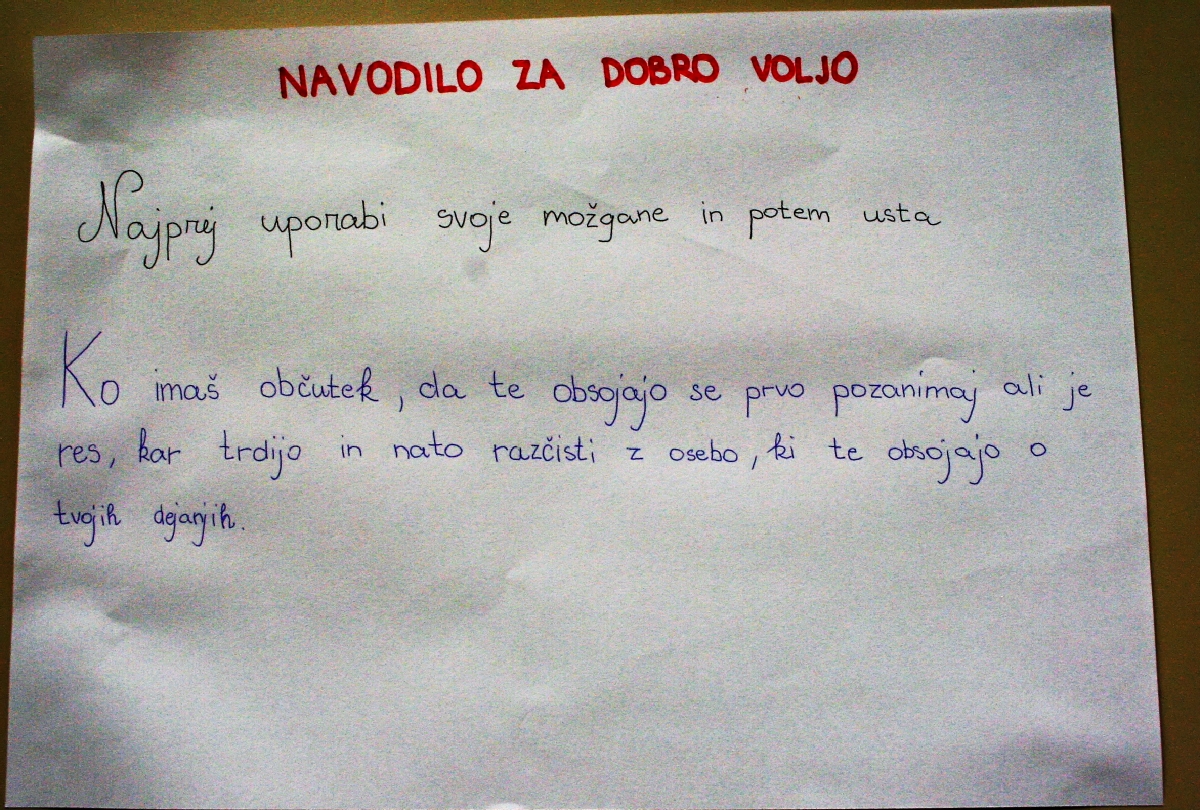 NAVODILO ZA DOBRO VOLJO
Najprej uporabi svoje možgane in potem usta
Ko imaš občutek, da te obsojajo se prvo pozanimaj ali je
res, kar trdijo in nato razčisti z osebo, ki te obsojajo o
tvojih dejanjih.